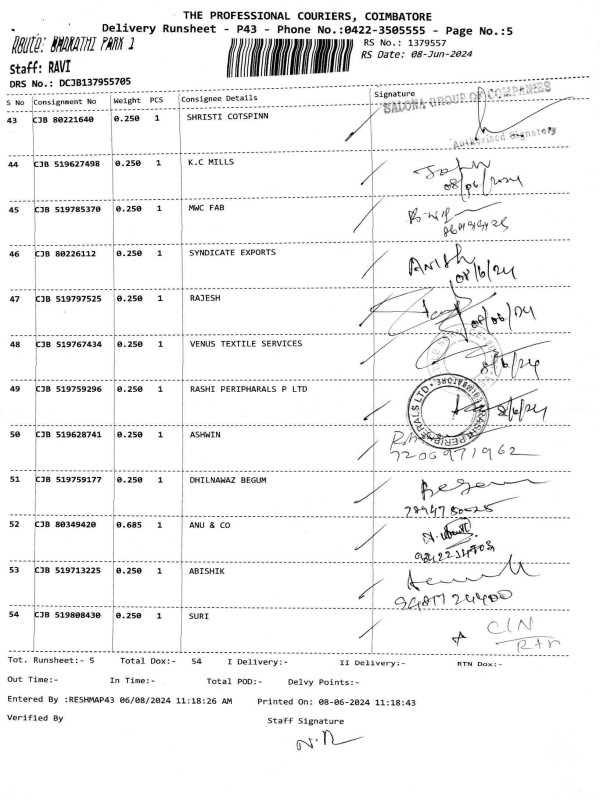 THE PROFESSIONAL COURIERS, COIMBATORE
Delivery Runsheet - P43 - Phone No.:0422-3505555 - Page No.:5
Route: BHARATHI PARK 1
RS No.: 1379557
RS Date: 08-Jun-2024
Staff: RAVI
DRS No.: DCJB137955705
S No Consignment No Weight PCS Consignee Details Signature
SALONA GROUP OF COMPANIES
43 CJB 80221640 0.250 1 SHRISTI COTSPINN
Authorised Signatory
44 CJB 519627498 0.250 1 K.C MILLS John
08/06/2024
45 CJB 519785370 0.250 1 MWC FAB
46 CJB 80226112 0.250 1 SYNDICATE EXPORTS Anish
08/6/24
47 CJB 519797525 0.250 1 RAJESH
08/06/24
48 CJB 519767434 0.250 1 VENUS TEXTILE SERVICES
8/6/24
49 CJB 519759296 0.250 1 RASHI PERIPHARALS P LTD
RASHI PERIPHERALS LTD. COIMBATORE
8/6/24
50 CJB 519628741 0.250 1 ASHWIN
7200971962
51 CJB 519759177 0.250 1 DHILNAWAZ BEGUM Begum
52 CJB 80349420 0.685 1 ANU & CO
53 CJB 519713225 0.250 1 ABISHIK
54 CJB 519808430 0.250 1 SURI
C/N
RTN
Tot. Runsheet:- 5 Total Dox:- 54 I Delivery:- II Delivery:- RTN Dox:-
Out Time:- In Time:- Total POD:- Delvy Points:-
Entered By :RESHMAP43 06/08/2024 11:18:26 AM Printed On: 08-06-2024 11:18:43
Verified By Staff Signature